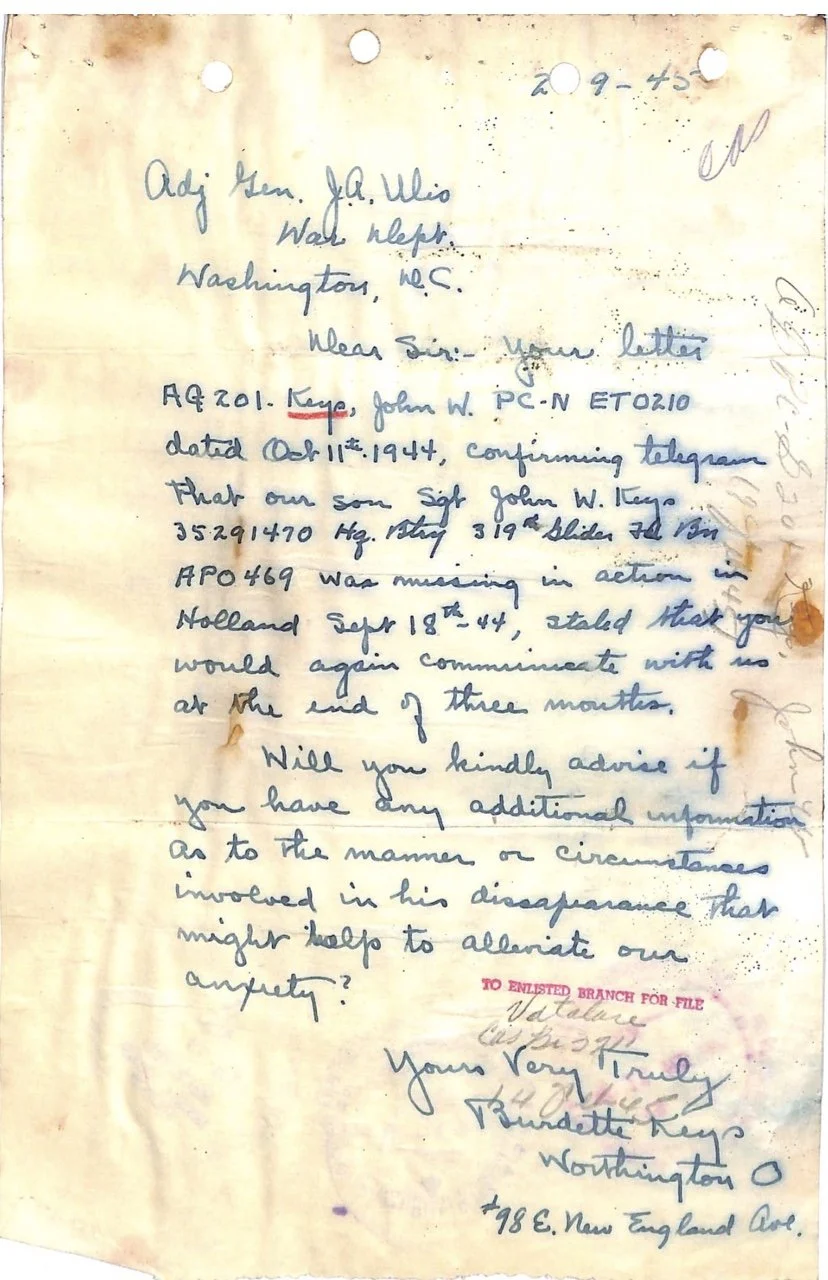 2 9-45
Adj Gen. J.A. Ulio
War Dept.
Washington, D.C.
Dear Sir:- Your letter
AG 201. Keys, John W. PC-N ETO210
dated Oct 11th 1944, confirming telegram
that our son Sgt John W. Keys
35291470 Hq. Btry 319th Glider Fld Bn
APO 469 was missing in action in
Holland Sept 18th-44, stated that you
would again communicate with us
at the end of three months.
Will you kindly advise if
you have any additional information
as to the manner or circumstances
involved in his dissapearance that
might help to alleviate our
anxiety?
TO ENLISTED BRANCH FOR FILE
Yours Very Truly
Burdette Keys
Worthington O
#98 E. New England Ave.